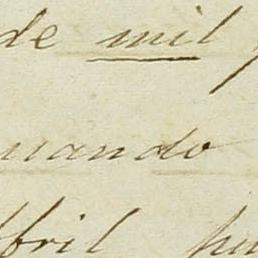 de mil
uando
Abril